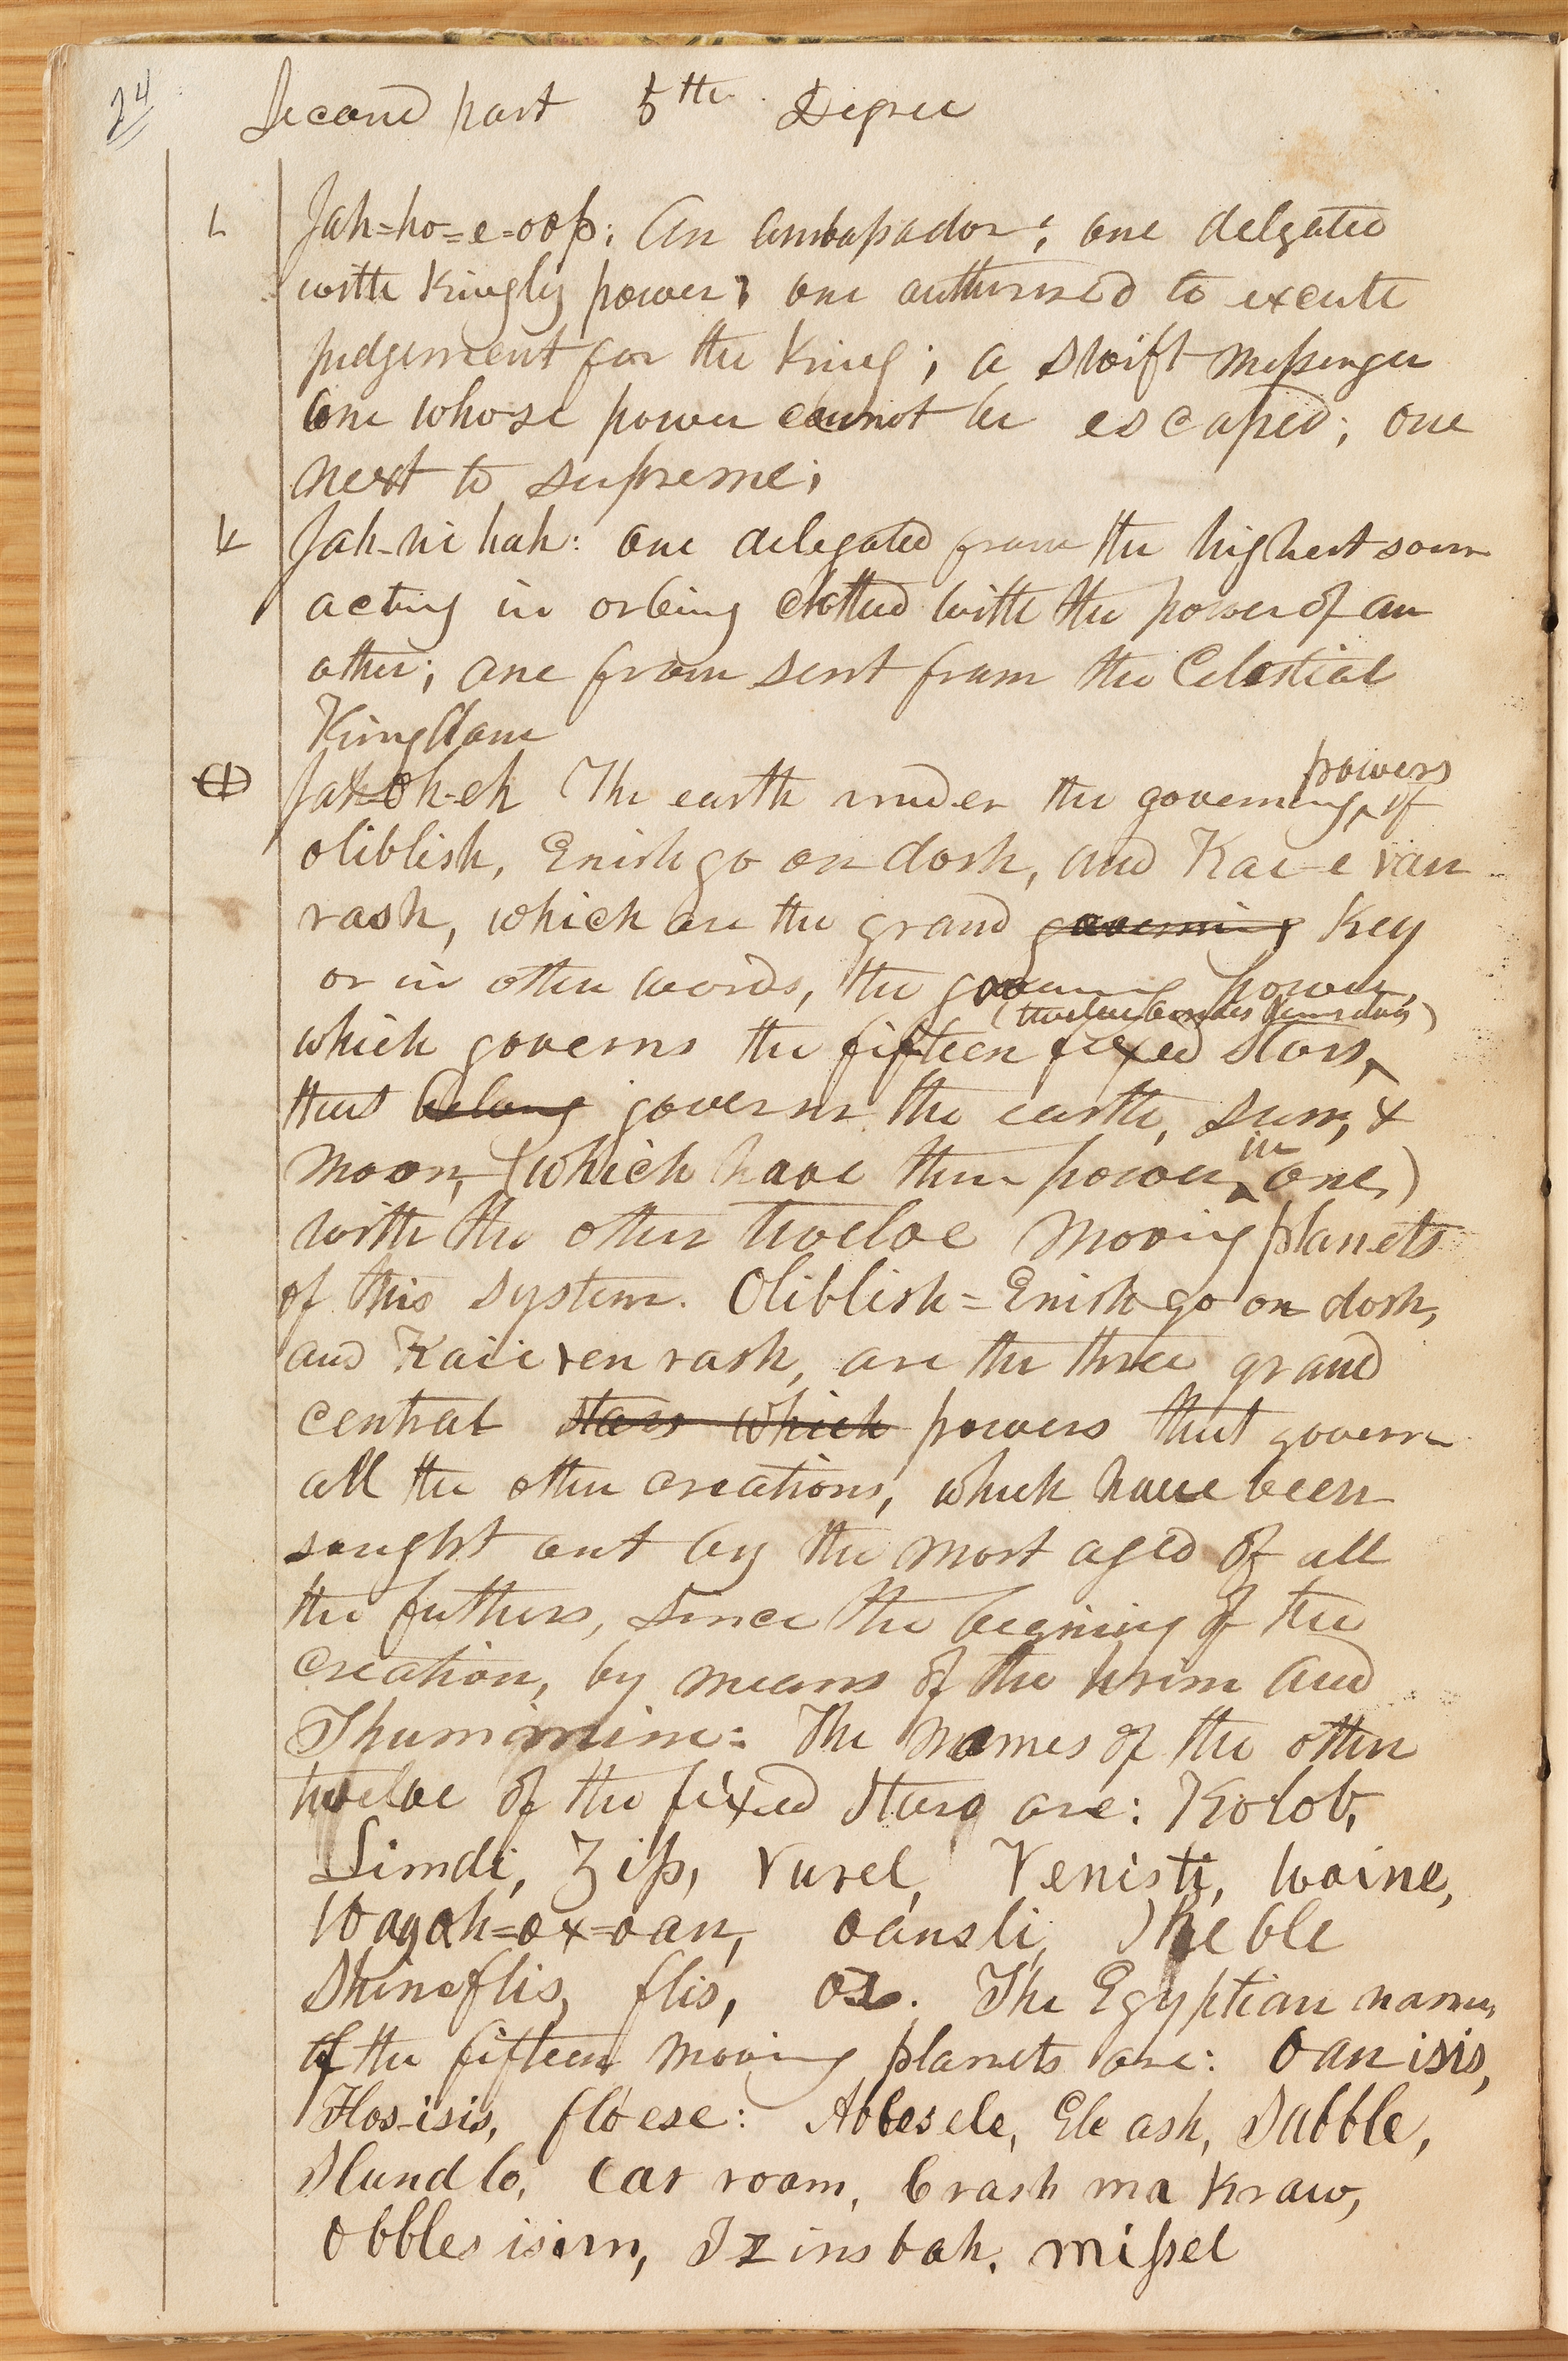 24
Second part 5th Degree
Jah=ho=e=oop: An ambassador; one delgated
with Kingly power; one authorized to excute
judgement for the King; a swift messenger
one whose power cannot be escaped; one
next to supreme;
Jah-ni hah: one delegated from the highest sour
acting in or being clothed with the power of an
other; one from sent from the Celestial
Kingdom
Jah-oh-eh The earth under the governing powers of
oliblish, Enish go on dosh, and Kae-e van
rash, which are the grand governing Key
or in other words, the governing power,
which governs the fifteen fixed stars, (twelve
that belong governs the earth, sun, &
moon, (which have their power in one,)
with the other twelve moving planets
of this system. Oliblish = Enish go on dosh,
and Kaii ven rash, are the three grand
central stars which powers that govern
all the other creations, which have been
sought out by the most aged of all
the fathers, since the begining of the
creation, by means of the Urim and
Thummim: The names of the other
twelve of the fixed stars are: Kolob,
Limdi, Zip, Vusel, Venisti, Waine,
Wagah=ox=oan, oansli, Shible
Shineflis, flis, os. The Egyptian names
of the fifteen moving planets are: Oan isis,
Flos-isis, floese: Abbesele, Ele ash, Subble,
Slundlo, Car room, Crash ma kraw,
obbles isim, Izinsbah, missel